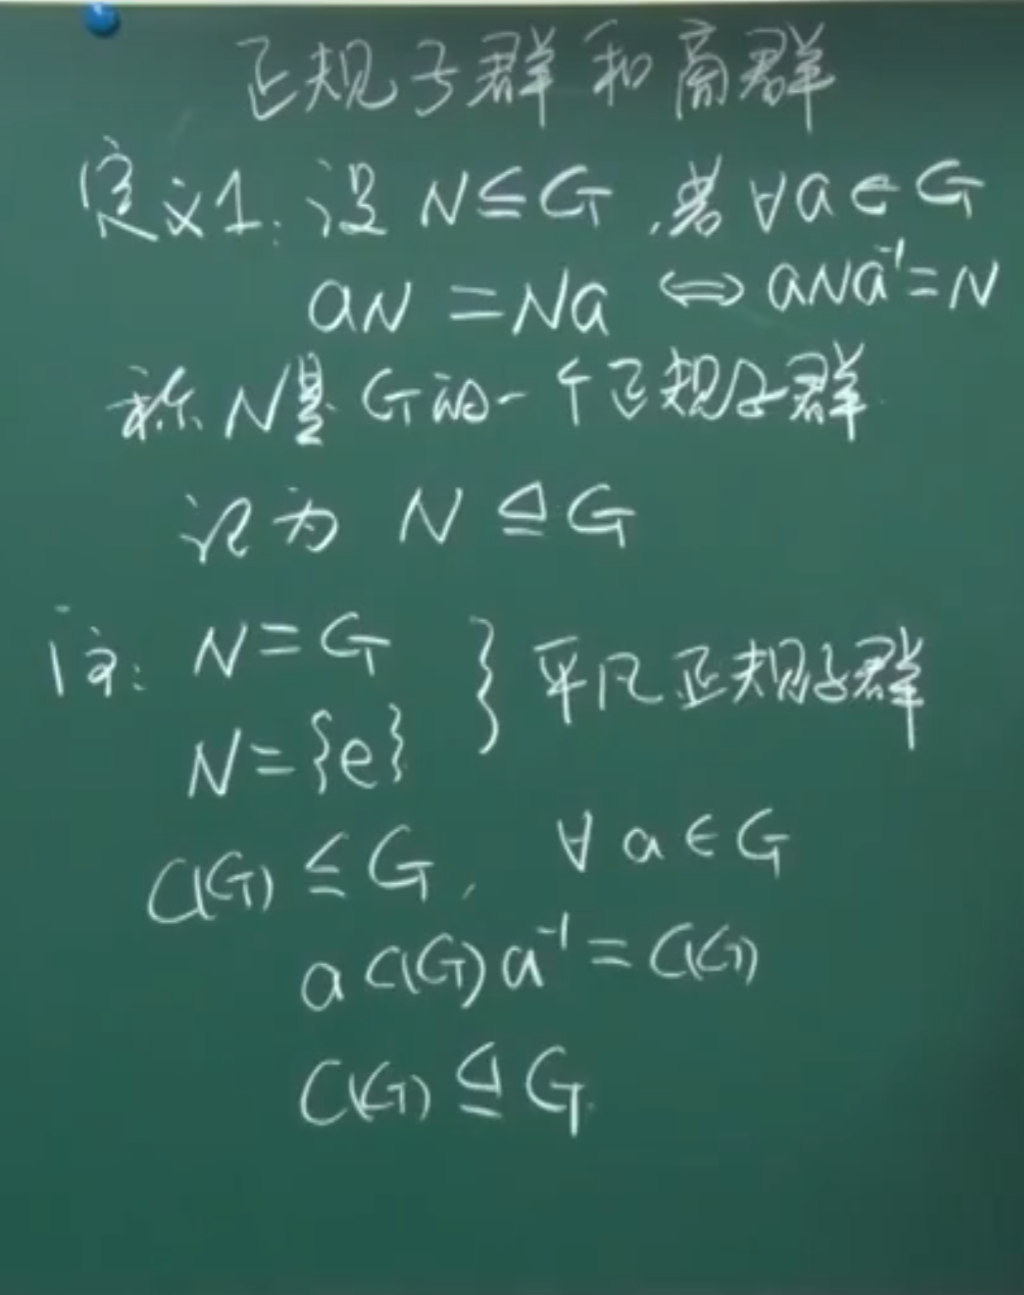 正规子群和商群
定义1: 设 N≤G, 若 ∀a∈G
aN=Na ⇔ aNa⁻¹=N
称N是G的一个正规子群
记为 N⊴G
注: N=G
N={e} } 平凡正规子群
C(G)≤G, ∀a∈G
aC(G)a⁻¹=C(G)
C(G)⊴G.